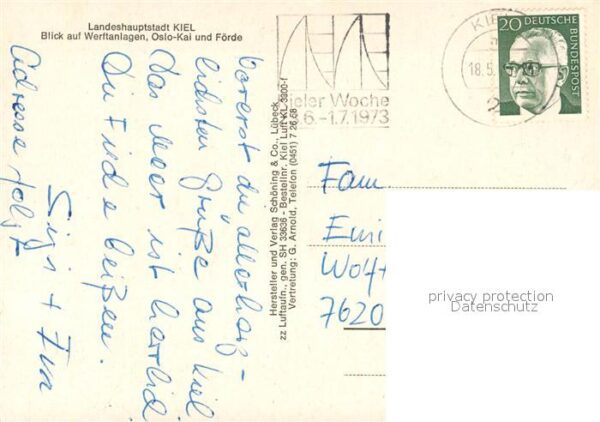 Landeshauptstadt KIEL
Blick auf Werftanlagen, Oslo-Kai und Förde
Vorerst die "allerherz-
lichsten Grüße aus Kiel
Das Meer ist herrlich
Die Fische beißen.
Sigi +
Adresse folgt
Hersteller und Verlag Schöning & Co., Lübeck
zz Luftaufn., gen. SH 33636 - Bestellnr. Kiel Luft KL 3900-f
Vertretung: G. Arnold, Telefon (0451) 7 26 68
ieler Woche
.6.-1.7.1973
KIE
18.5.
2
20 DEUTSCHE
BUNDESPOST
Fam
Emi
Wolf
7620
privacy protection
Datenschutz